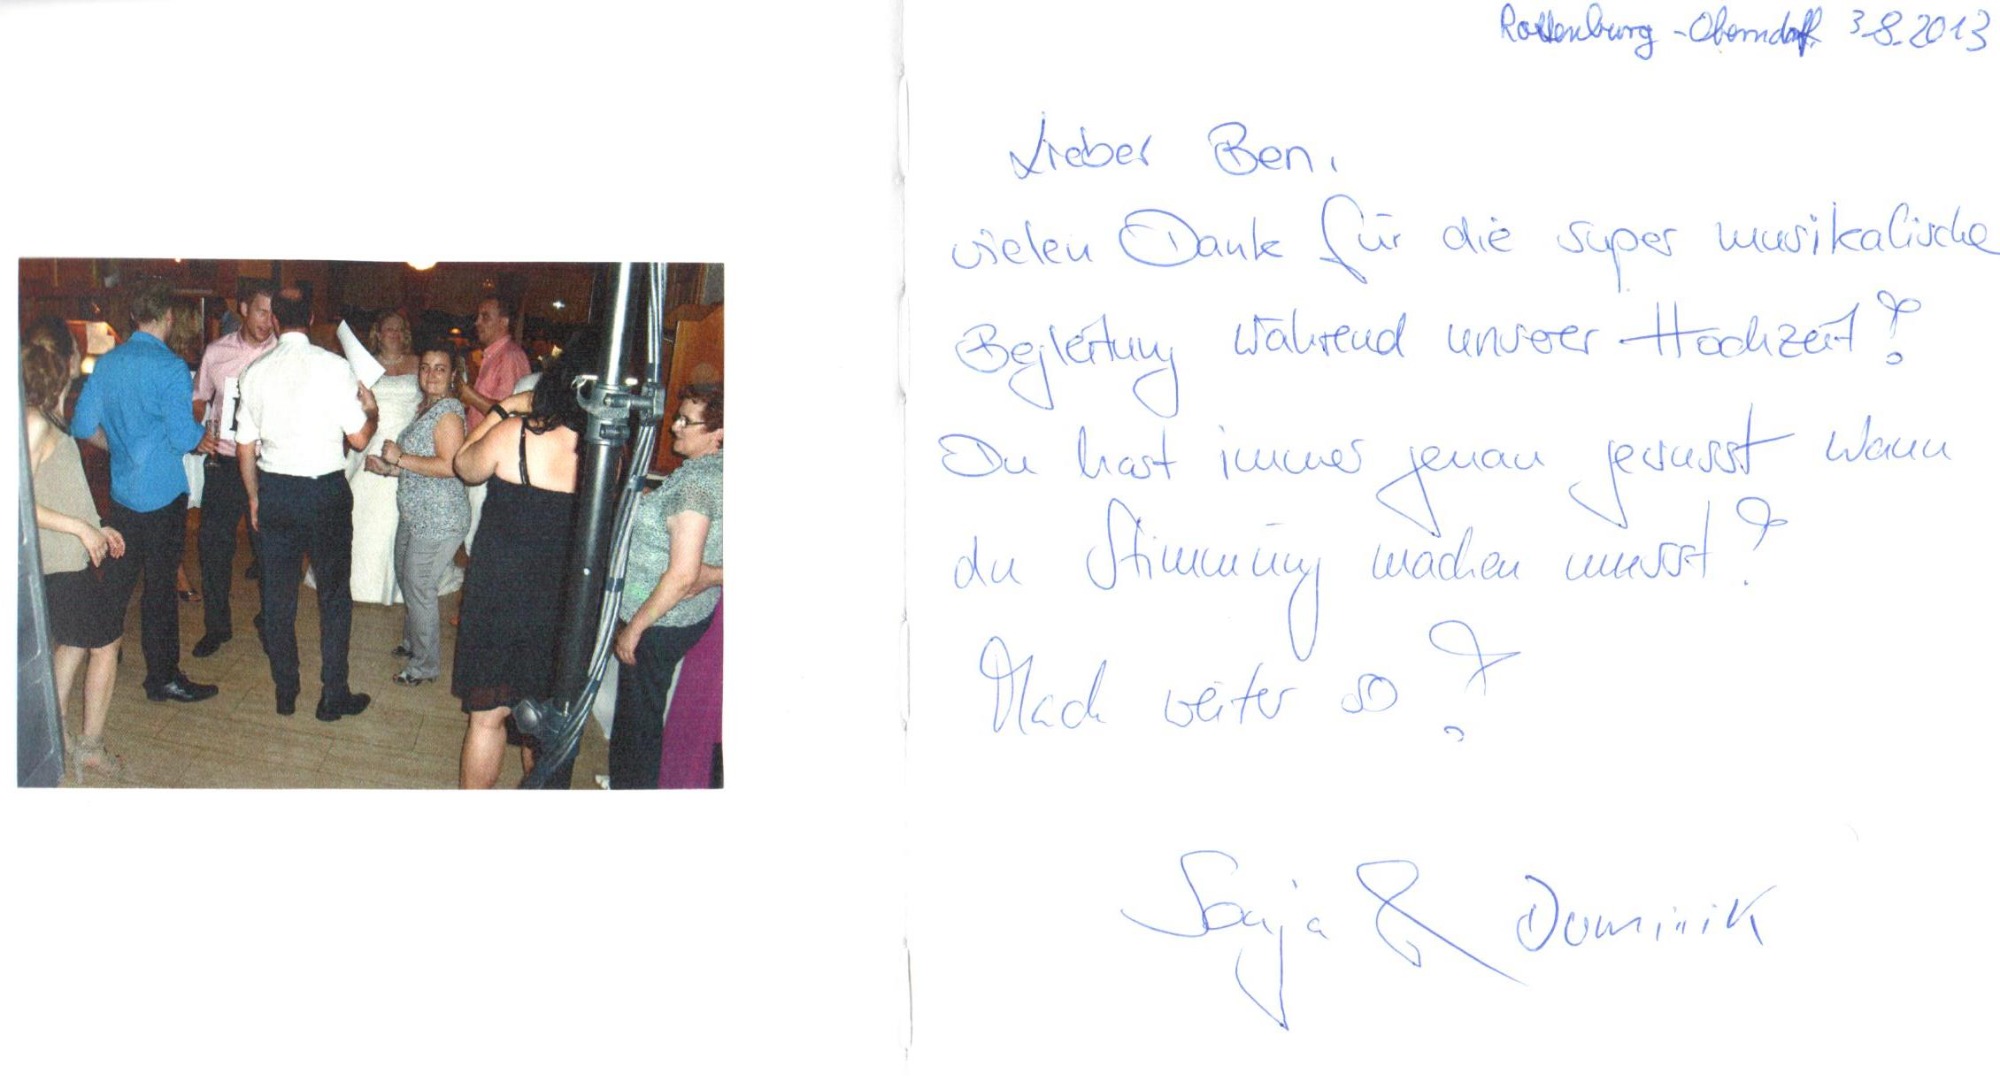 Rottenburg - Oberndorf 3.8.2013
Lieber Ben,
vielen Dank für die super musikalische
Begleitung während unserer Hochzeit!
Du hast immer genau gewusst wann
du Stimmung machen musst!
Mach weiter so!
Sonja & Dominik